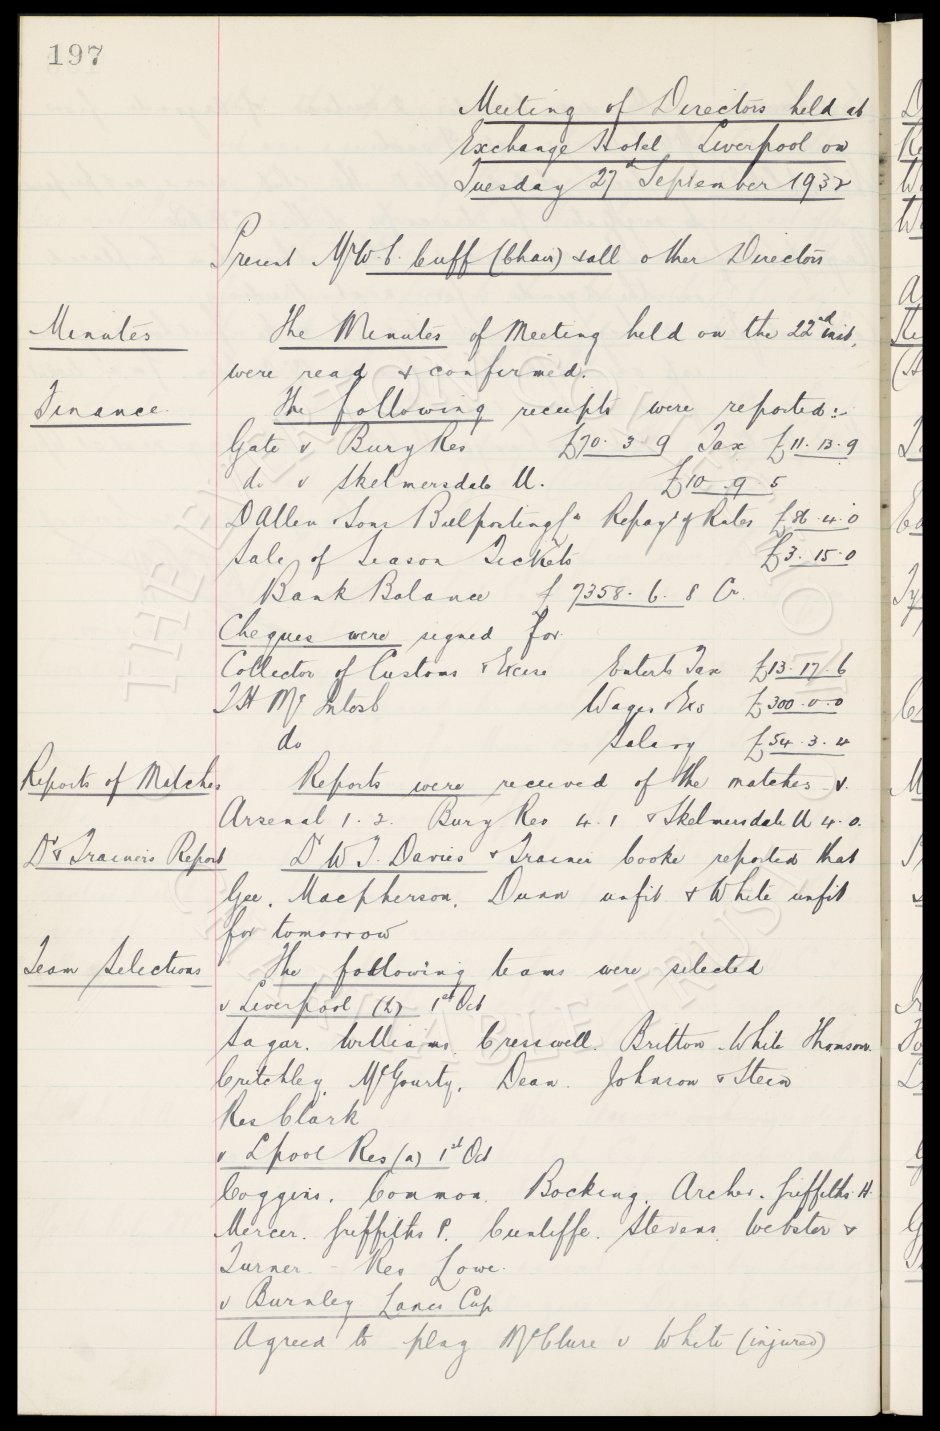 197
Meeting of Directors held at
Exchange Hotel, Liverpool on
Tuesday 27th September 1932
Present Mr W. C. Cuff (Chair) & all other Directors
Minutes The Minutes of Meeting held on the 22nd inst,
were read & confirmed.
Finance. The following receipts were reported:-
Gate v Bury Res £70. 3 9 Tax £11. 13. 9
do v Skelmersdale U. £10. 9 5
D Allen & Sons Billposting Co Repayt of Rates £86. 4. 0
Sale of Season Tickets £3. 15. 0
Bank Balance £ 7358. 6. 8 Cr.
Cheques were signed for
Collector of Customs & Excise Enterts Tax £13. 17. 6
T H McIntosh Wages & Exs £300. 0. 0
do Salary £54. 3. 4
Reports of Matches Reports were received of the matches v.
Arsenal 1. 2. Bury Res 4. 1 & Skelmersdale U 4. 0.
Dr & Trainers Report Dr W. J. Davies & Trainer Cooke reported that
Gee, Macpherson, Dunn unfit & White unfit
for tomorrow
Team Selections The following teams were selected
v Liverpool (h) 1st Oct
Sagar. Williams. Cresswell. Britton. White Thomson.
Critchley. McGourty. Dean. Johnson & Stein
Res Clark
v Lpool Res (a) 1st Oct
Coggins. Common. Bocking. Archer. Griffiths H.
Mercer. Griffiths P. Cunliffe. Stevens. Webster &
Turner - Res Lowe.
v Burnley Lancs Cup
Agreed to play McClure v White (injured)